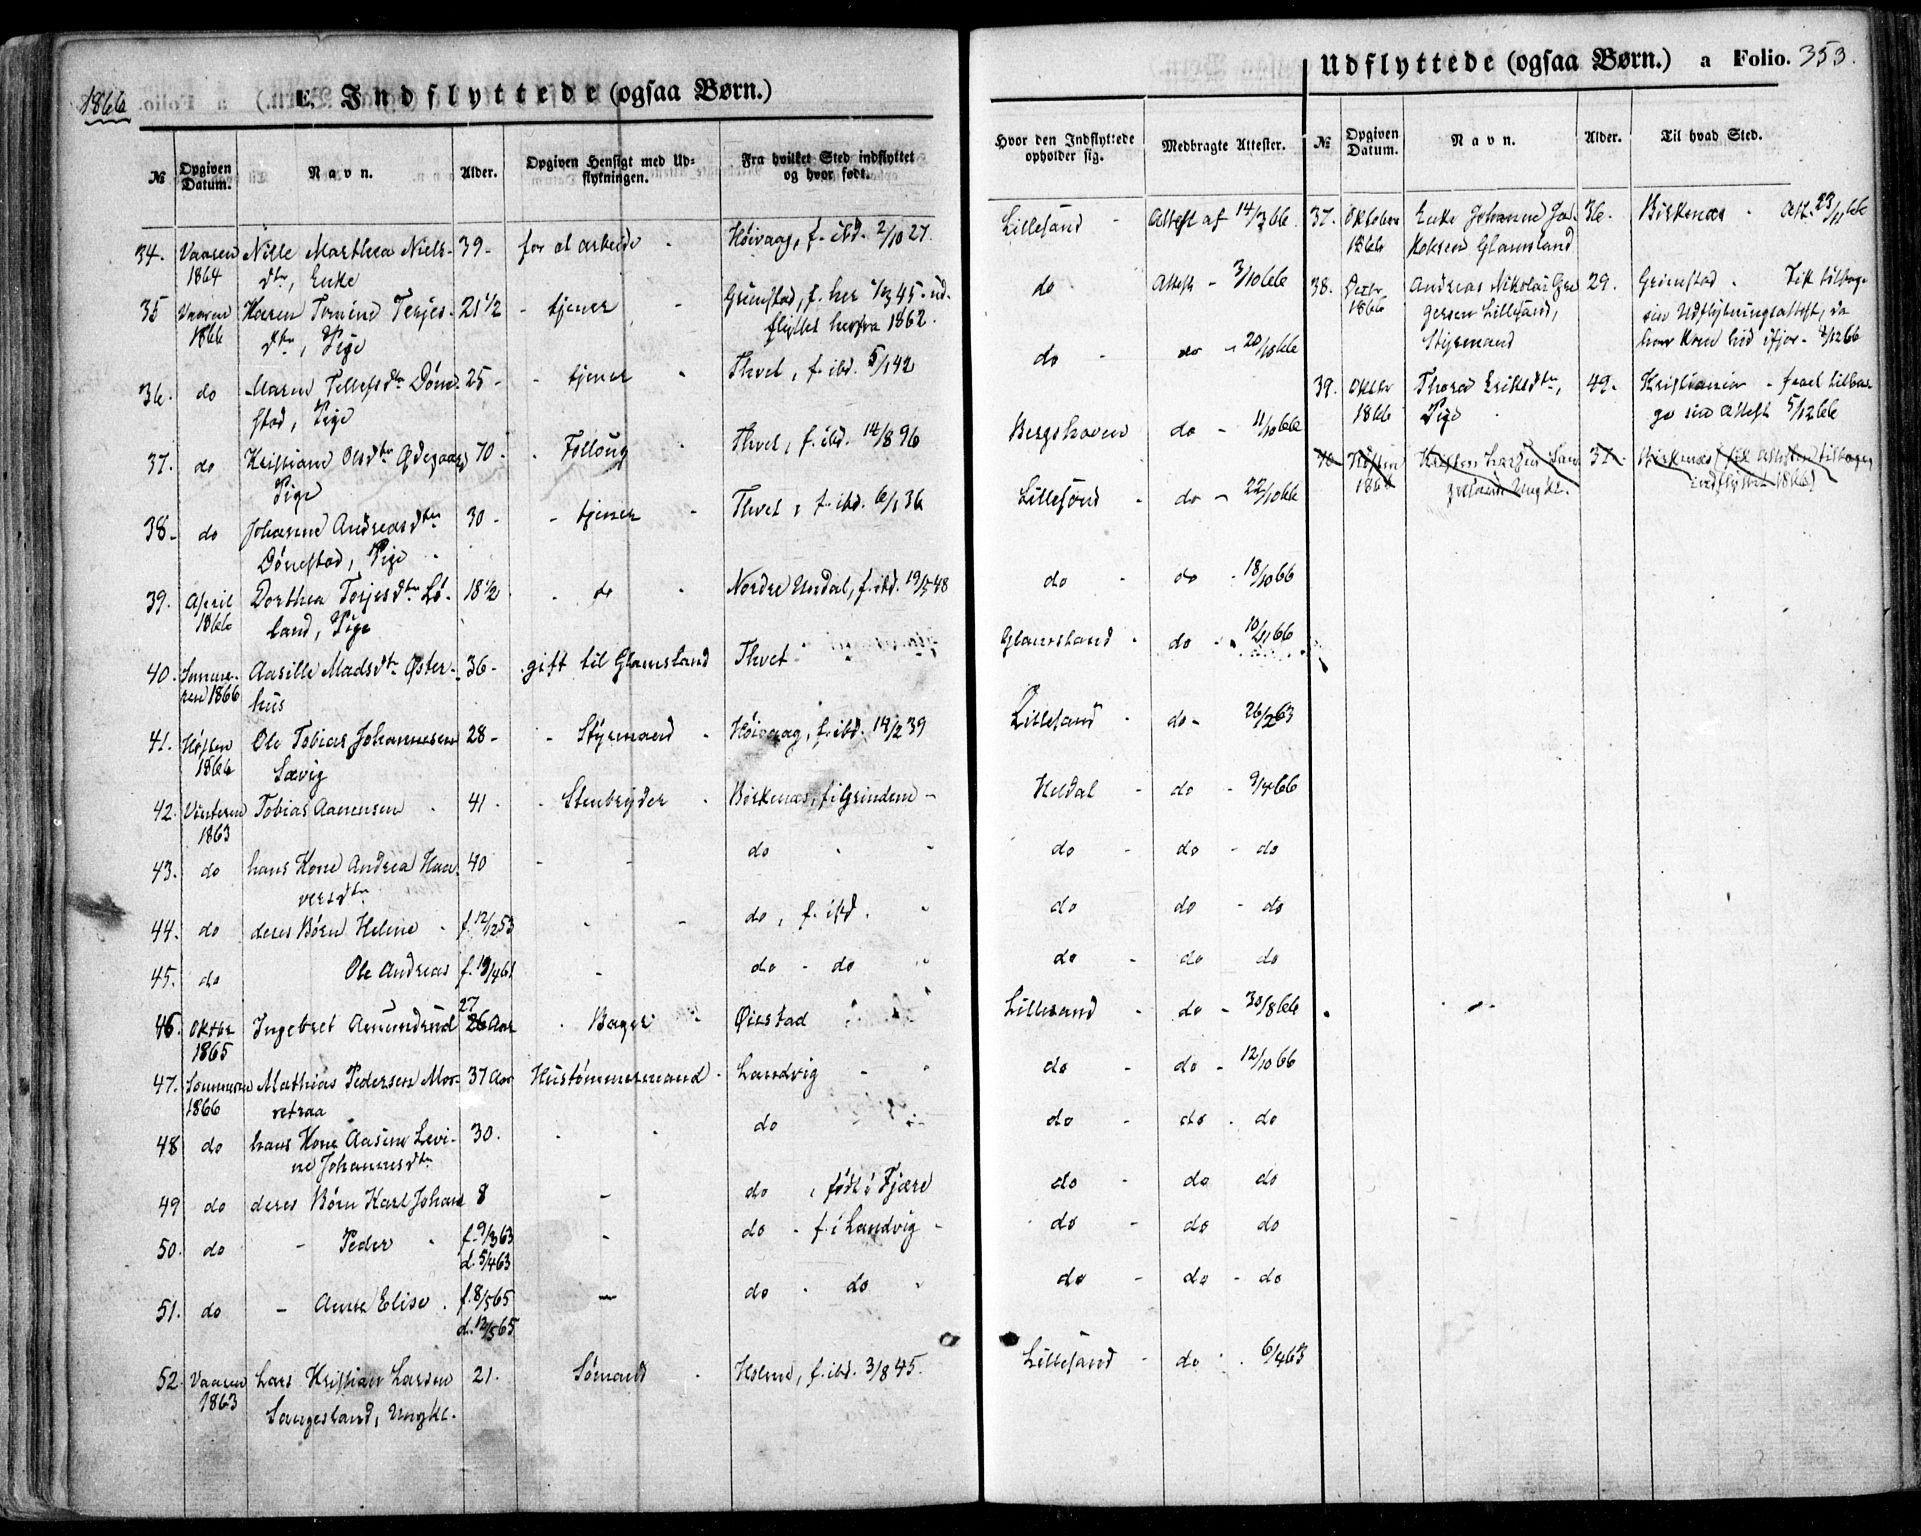 1866
E. Indflyttede (ogsaa Børn.)
№ Opgiven Datum. Navn. Alder. Opgiven Hensigt med Udflytningen. Fra hvilket Sted indflyttet og hvor født.
Hvor den Indflyttede opholder sig. Medbragte Attester.
34. Vaaren 1864 Nille Marthea Niels- 39 - for at arbeide Høivaag, f. ibd. 2/10 27. Lillesand Attest af 14/3 66
dtr, Enke
35 Vaaren 1866 Karen Tomine Terjes- 21 1/2 - tjener Grimstad, f. her 1/3 45 - ud- do Attest - 3/10 66
dtr, Pige flyttet herfra 1862.
36. do Maren Tellefsdtr Døne- 25 - - tjener Thvet, f. ibd. 5/1 42 do do - 20/10 66
stad, Pige
37. do Kristiane Olsdtr Ødegaard 70 - Follaug Thvet, f. ibd. 14/8 96 Bergshaven do - 11/10 66
Pige
38. do Johanne Andreasdtr 30 - - tjener Thvet, f. ibd. 6/1 36 Lillesand do - 22/10 66
Dønestad, Pige
39. April 1866 Dorthea Terjesdtr Lø- 18 1/2 do Nordre Undal, f. ibd. 19/5 48 do do - 18/10 66
land, Pige
40. Sommeren 1866 Aasille Madsdtr Øster- 36 - gift til Glamsland Thvet Glamsland do - 10/11 66
hus
41. Høsten 1866 Ole Tobias Johannesen 28 - - Styrmand Høivaag, f. ibd. 14/2 39 Lillesand do - 26/2 63
Sævig
42. Vinteren 1863 Tobias Aanensen 41 - - Stenbryder Birkenæs, f. i Grindem - Heldal do - 9/4 66
43. do hans Kone Andrea Haa- 40 - - do do do - do
versdtr
44. do deres Børn Helene f. 12/2 53 do, f. ibd. do do - do
45. do Ole Andreas f. 19/4 61 - do - do do do do
46. Oktbr 1865 Ingebret Amundrud 27 26 Aar Bager Øiestad Lillesand do - 30/8 66
47. Sommeren 1866 Mathias Pedersen Mor- 37 Aar Hustømmermand Landvig do do - 12/10 66
retraa
48 do hans Kone Aasine Levi- 30. do do do - do
ne Johannesdtr
49 do deres Børn Karl Johan 8 - do, født i Fjære do do do
50. do - Peder f. 9/3 63 - do - f. i Landvig - do do do
d. 5/4 63
51. do - Anna Elise f. 8/5 65 - do do do do - do
d. 12/5 65
52. Vaaren 1863 Lars Kristian Larsen 21. Sømand Holme, f. ibd. 3/8 45. Lillesand do 6/4 63
Sangesland, Ungkl.
Udflyttede (ogsaa Børn.) a Folio. 353.
№ Opgiven Datum. Navn. Alder. Til hvad Sted.
37. Oktober 1866 Enke Johanne Ja- 36. Birkenæs - Att. 23/11 66
kobsen Glamsland
38. Dezbr 1866 Andreas Nikolai Gre- 29. Grimstad - Fik tilbage
gersen Lillesand, sin Udflytningsattest, da
Styrmand han kom hid ifjor - 4/12 66
39. Oktbr 1866 Thora Eriksdtr, 49. Kristiania - fraal tilba-
Pige ge sin Attest 5/12 66
40 Høsten Kristen Larsen San- 31. Birkenæs (fik Attesten tilbage
gesland Ungkl. indflyttet 1866)